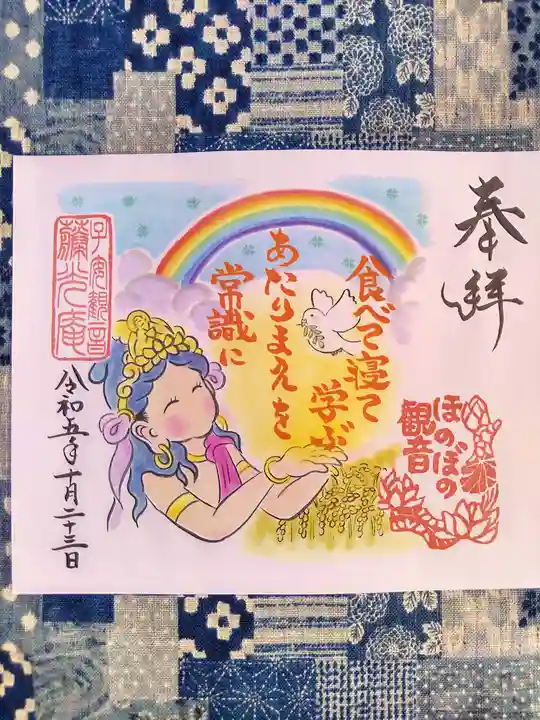 奉拝
ほのぼの
観音
食べて寝て
学ぶ
あたりまえを
常識に
子安観音
蘭光庵
令和五年十月二十三日